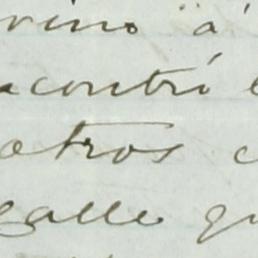 vino á
contré
otros c
calle qu